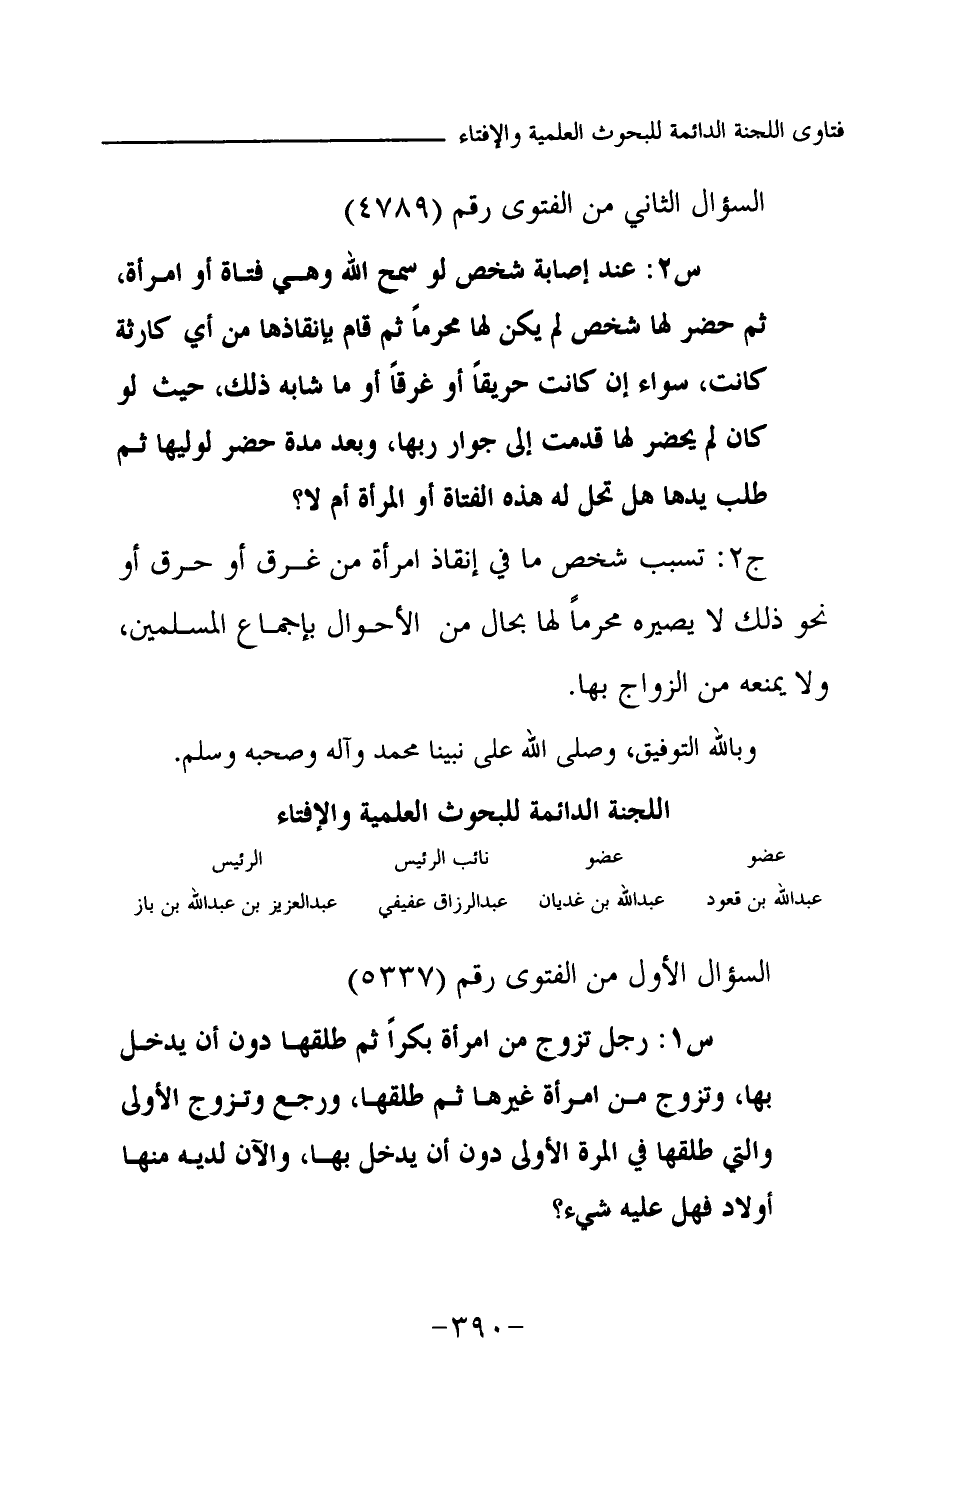 فتاوى اللجنة الدائمة للبحوث العلمية والإفتاء
السؤال الثاني من الفتوى رقم (٤٧٨٩)
س٢: عند إصابة شخص لو سمح الله وهـي فتـاة أو امـرأة،
ثم حضر لها شخص لم يكن لها محرماً ثم قام بإنقاذها من أي كارثة
كانت، سواء إن كانت حريقاً أو غرقاً أو ما شابه ذلك، حيث لو
كان لم يحضر لها قدمت إلى جوار ربها، وبعد مدة حضر لوليها ثـم
طلب يدها هل تحل له هذه الفتاة أو المرأة أم لا؟
ج٢: تسبب شخص ما في إنقاذ امرأة من غـرق أو حـرق أو
نحو ذلك لا يصيره محرماً لها بحال من الأحـوال بإجمـاع المسـلمين،
ولا يمنعه من الزواج بها.
وبالله التوفيق، وصلى الله على نبينا محمد وآله وصحبه وسلم.
اللجنة الدائمة للبحوث العلمية والإفتاء
عضو عضو نائب الرئيس الرئيس
عبدالله بن قعود عبدالله بن غديان عبدالرزاق عفيفي عبدالعزيز بن عبدالله بن باز
السؤال الأول من الفتوى رقم (٥٣٣٧)
س١: رجل تزوج من امرأة بكراً ثم طلقهـا دون أن يدخـل
بها، وتزوج مـن امـرأة غيرهـا ثـم طلقهـا، ورجـع وتـزوج الأولى
والتي طلقها في المرة الأولى دون أن يدخل بهـا، والآن لديـه منهـا
أولاد فهل عليه شيء؟
-٣٩٠-